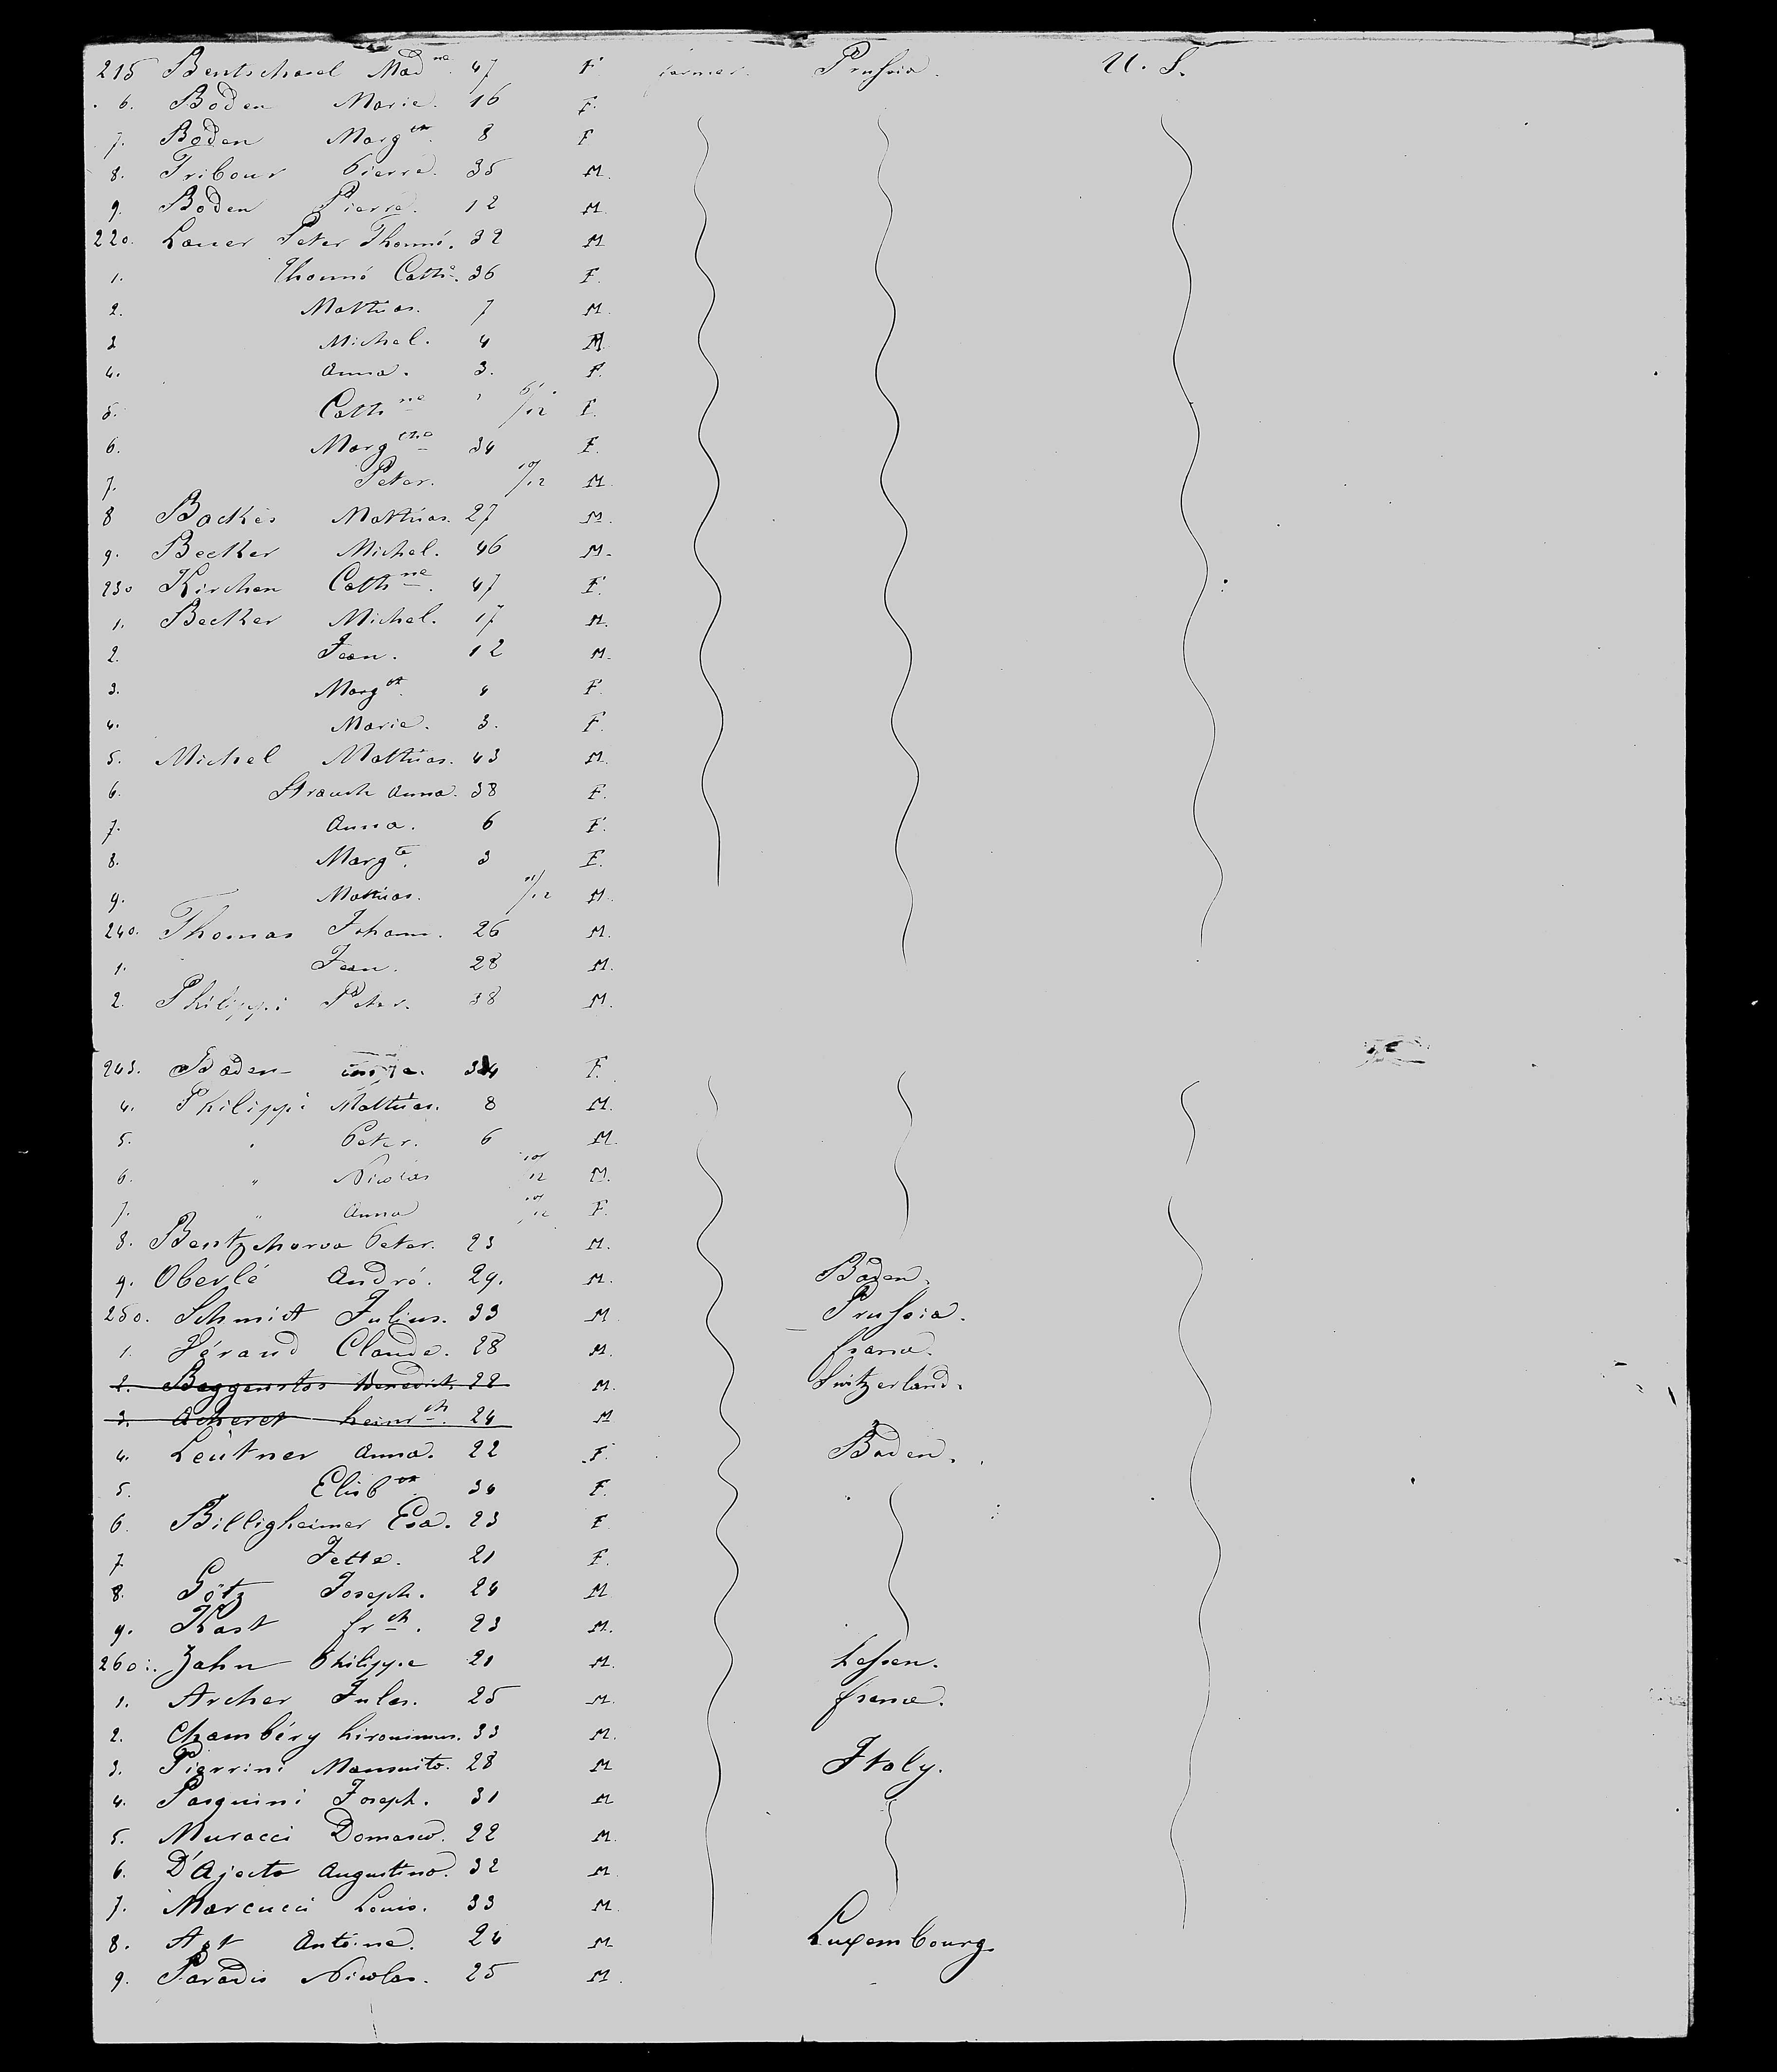 215 Bentschavel Mad ne. 47 F farmer. Prussia. U. S.
6. Boden Marie. 16 F.
7. Boden Marg te. 8 F
8. Tribour Pierre. 35 M.
9. Boden Pierre. 12 M.
220. Lauer Peter Thomé. 32 M
1. Thomé Cath e. 36 F.
2. Mathias. 7 M.
3 Michel. 4 M.
4. Anna. 3. F.
5. Cath ne 6/12 F.
6. Marg the 34 F.
7. Peter. 10/12 M.
8 Backes Mathias. 27 M.
9. Becker Michel. 46 M.
230 Kirchen Cath ne. 47 F.
1. Becker Michel. 17 M.
2. Jean. 12 M.
3. Marg te. 4 F.
4. Marie. 3. F.
5. Michel Mathias. 43 M.
6. Strauch Anna. 38 F.
7. Anna. 6 F.
8. Marg te. 3 F.
9. Mathias. 11/12 M.
240. Thomas Johann. 26 M.
1. Jean. 28 M.
2. Philippi Peter. 38 M.
243. Boden 34 F.
4. Philippi Mathias. 8 M.
5. " Peter. 6 M.
6. " Nicolas 10/12 M.
7. " Anna 10/12 F.
8. Peter. 23 M.
9. Oberlé André. 29. M. Baden.
250. Schmidt Julius. 33 M Prussia.
1. Géraud Claude. 28 M. france.
2. Beggenstos Benedick 22 M. Switzerland.
3. Acheret heinr ch. 24 M
4. Leutner Anna. 22 F. Baden.
5. Elisb th. 34 F.
6. Billigheimer Eva. 23 F
7 Jette. 21 F.
8. Götz Joseph. 24 M
9. Kast fr ch. 23 M.
260. Zahn Philippe 21 M. hessen.
1. Archer Jules. 25 M. france.
2. Chambéry hironimus. 33 M.
3. Pierrini Mansuito. 28 M Italy.
4. Pasquini Joseph. 31 M
5. Muracci Domasco. 22 M.
6. D'Ajecto Augustino. 32 M
7. Marcucci Louis. 33 M.
8. Apt Antoine. 24 M Luxembourg.
9. Paradis Nicolas. 25 M.